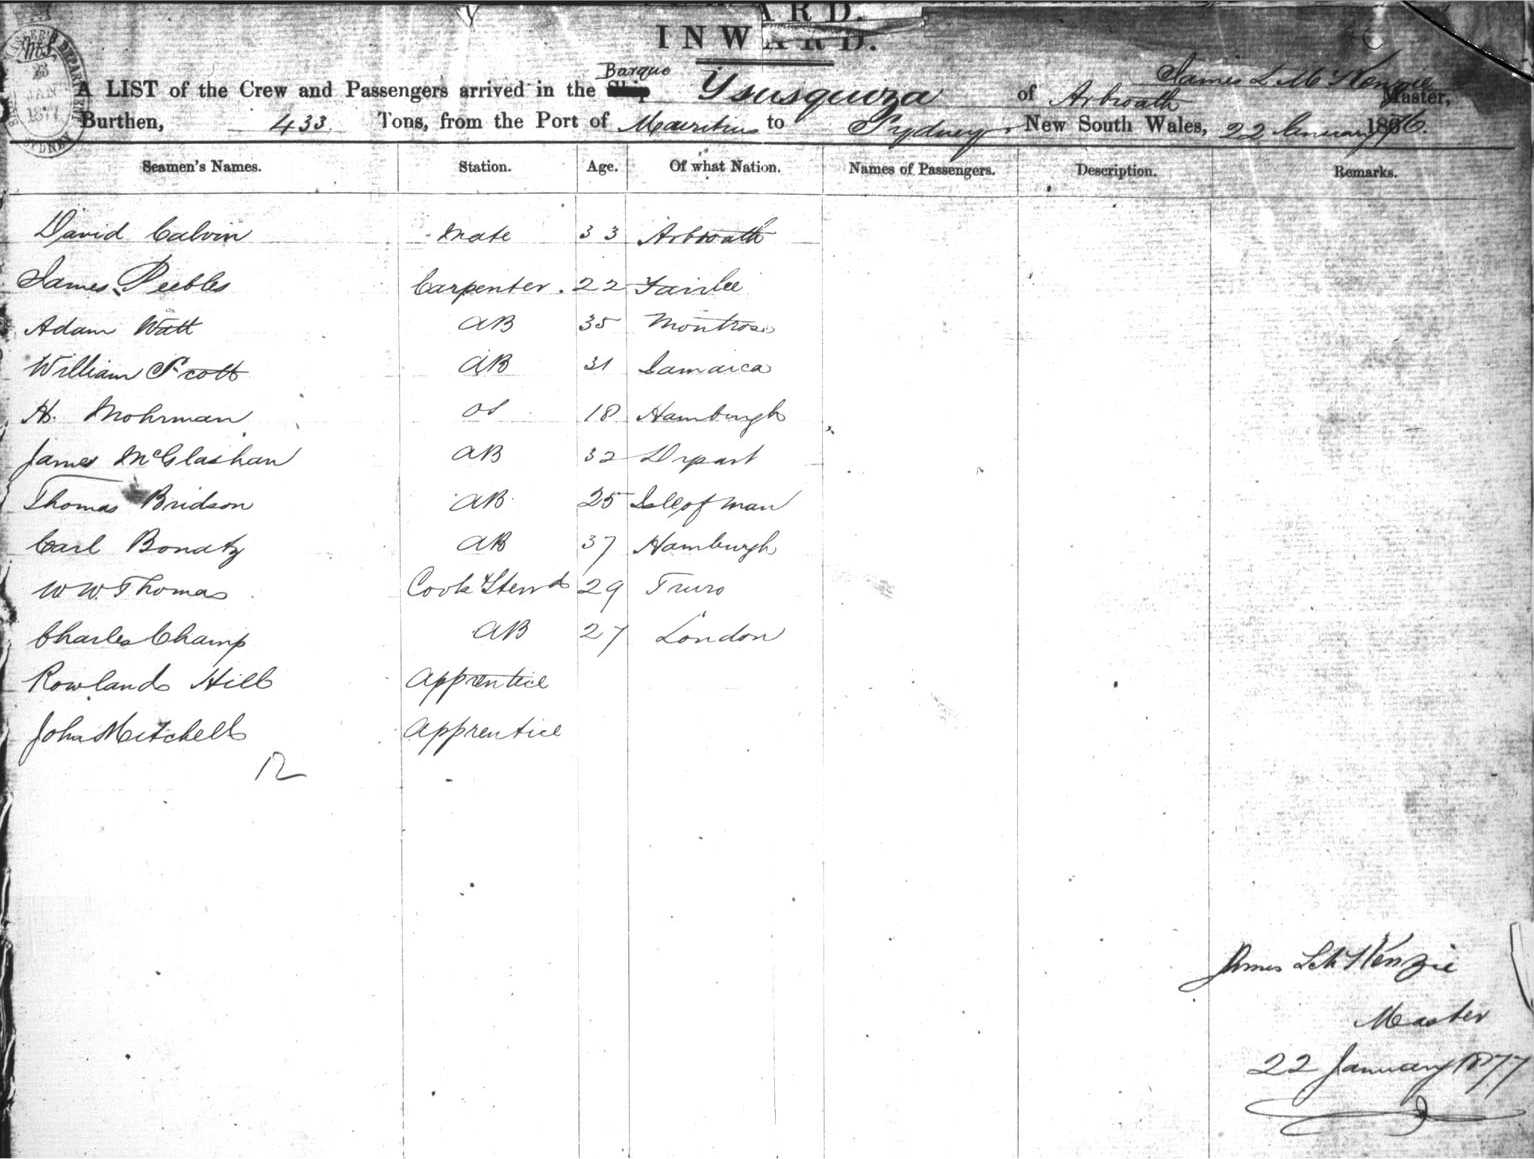 INWARD.
Barque
A LIST of the Crew and Passengers arrived in the Ship Ysusquiza of Arbroath James L McKenzie Master,
Burthen, 433 Tons, from the Port of Mauritius to Sydney New South Wales, 22 January 1876.
Seamen's Names. Station. Age. Of what Nation. Names of Passengers. Description. Remarks.
David Calvin Mate 33 Arbroath
James Peebles Carpenter. 22
Adam Watt AB 35 Montrose
William Scott AB 31 Jamaica
H. Mohrman OS 18 Hamburgh
James McGlashan AB 32
Thomas Bridson AB 25 Isle of Man
Carl Bonatz AB 37 Hamburgh
W W Thomas Cook & Stewd 29 Truro
Charles Champ AB 27 London
Rowland Hill Apprentice
John Mitchell Apprentice
12
James L McKenzie
Master
22 January 1877